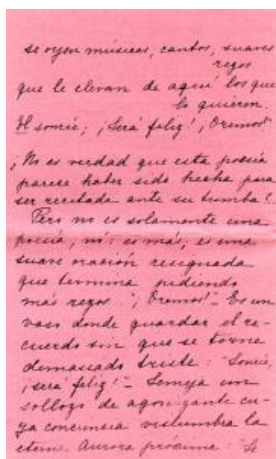 se oyen músicas, cantos, suaves
rezos
que le elevan de aquí los que
le quieren.
El sonríe; ¡Será feliz! ¡Oremos!
¡No es verdad que esta poesía
parese haber sido hecha para
ser recitada ante su tumba!
Pero no es solamente una
poesía, ni: es más, es una
suave oración resignada
que termina pidiendo
más rezos. "¡Oremos! - Es un
vaso donde guardar el re-
cuerdo sin que se torne
demasiado triste: "Sonríe,
¡será feliz! - Semeja un
sollozo de agonizante cu-
ya conciencia vislumbra la
eterna Aurora próxima: "Se